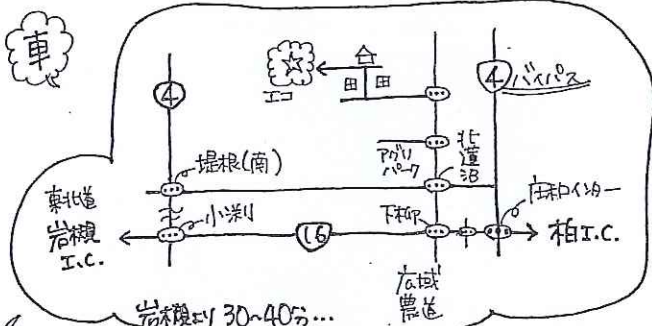 車
エコ
田 田
④
④ バイパス
アグリパーク
北蓮沼
堤根(南)
東北道
岩槻
I.C.
小渕
16
下柳
庄和インター
柏I.C.
広域
農道
岩槻より 30~40分…